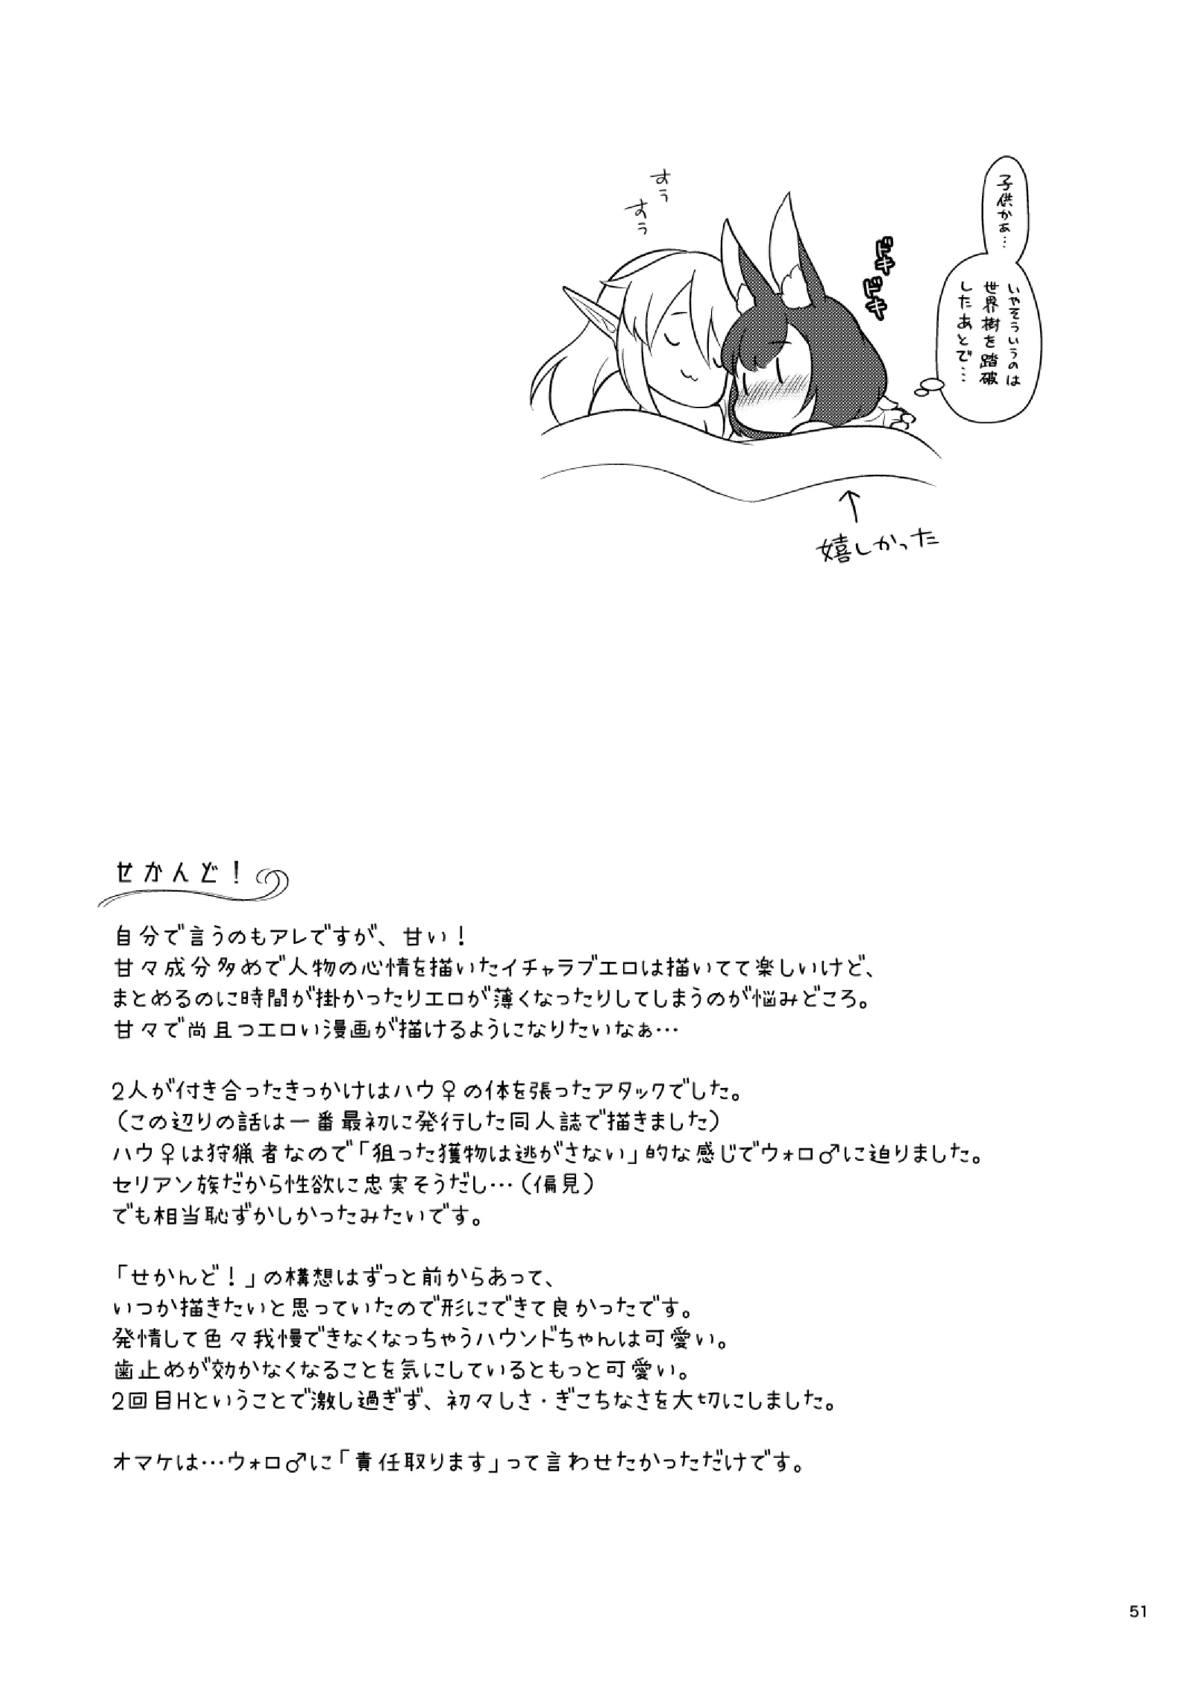 子供かぁ…
いやそういうのは
世界樹を踏破
したあとで…
ドキ
ドキ
すぅ
すぅ
嬉しかった
せかんど！
自分で言うのもアレですが、甘い！
甘々成分多めで人物の心情を描いたイチャラブエロは描いてて楽しいけど、
まとめるのに時間が掛かったりエロが薄くなったりしてしまうのが悩みどころ。
甘々で尚且つエロい漫画が描けるようになりたいなぁ…
2人が付き合ったきっかけはハウ♀の体を張ったアタックでした。
（この辺りの話は一番最初に発行した同人誌で描きました）
ハウ♀は狩猟者なので「狙った獲物は逃がさない」的な感じでウォロ♂に迫りました。
セリアン族だから性欲に忠実そうだし…（偏見）
でも相当恥ずかしかったみたいです。
「せかんど！」の構想はずっと前からあって、
いつか描きたいと思っていたので形にできて良かったです。
発情して色々我慢できなくなっちゃうハウンドちゃんは可愛い。
歯止めが効かなくなることを気にしているともっと可愛い。
2回目Hということで激し過ぎず、初々しさ・ぎこちなさを大切にしました。
オマケは…ウォロ♂に「責任取ります」って言わせたかっただけです。
51